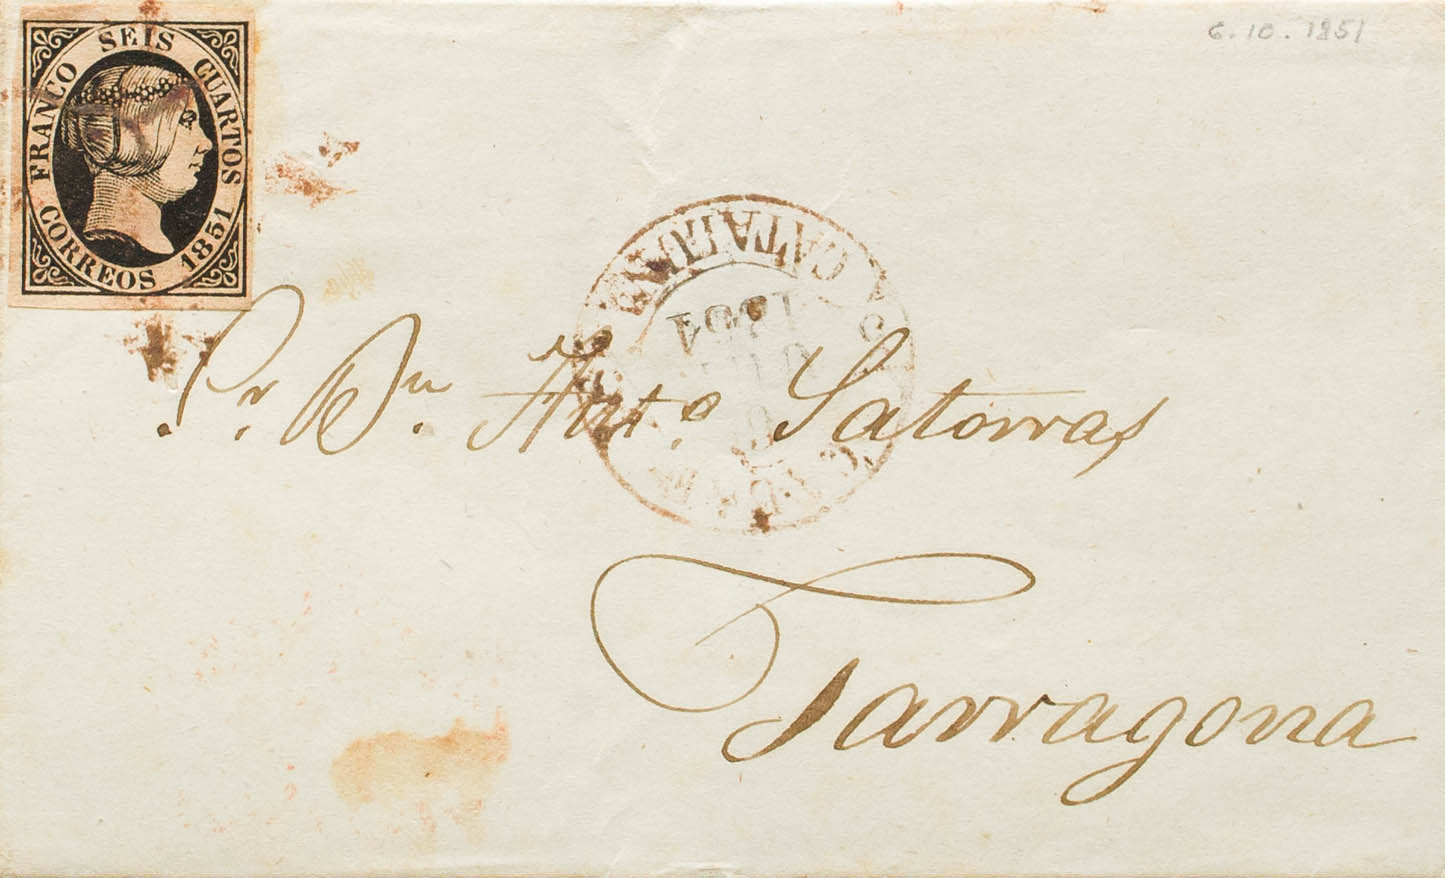 FRANCO SEIS CUARTOS
CORREOS 1851
6.10.1851
CATALUÑA
Sr. Dn. Anto. Satorras
Tarragona